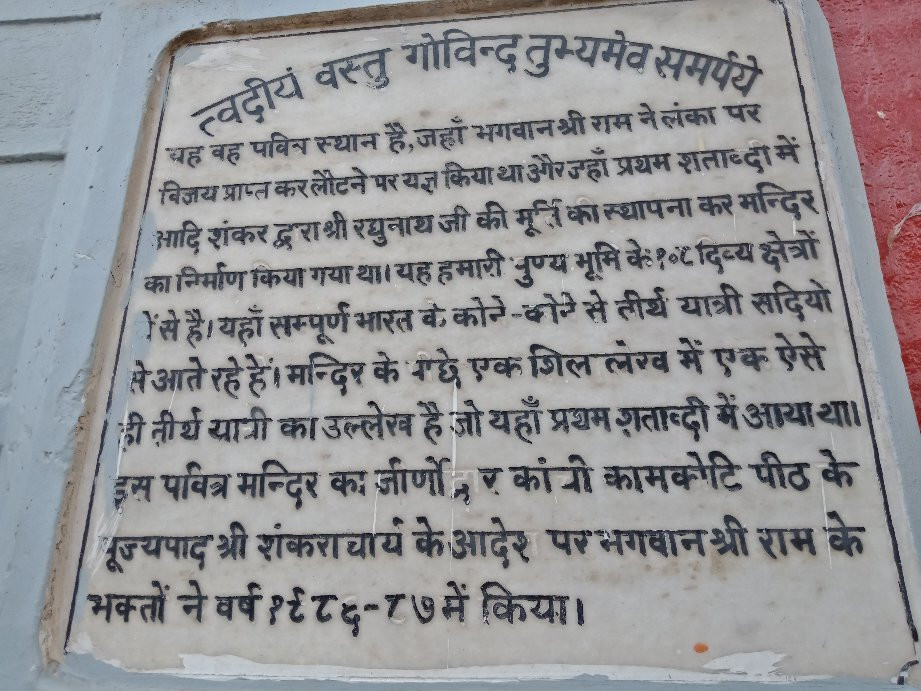 त्वदीयं वस्तु गोविन्द तुभ्यमेव समर्पये
यह वह पवित्र स्थान है, जहाँ भगवान श्री राम ने लंका पर
विजय प्राप्त कर लौटने पर यज्ञ किया था और जहाँ प्रथम शताब्दी में
आदि शंकर द्वारा श्री रघुनाथ जी की मूर्ति का स्थापना कर मन्दिर
का निर्माण किया गया था। यह हमारी पुण्य भूमि के १०८ दिव्य क्षेत्रों
में से है। यहाँ सम्पूर्ण भारत के कोने-कोने से तीर्थ यात्री सदियो
से आते रहे हैं। मन्दिर के पीछे एक शिला लेख में एक ऐसे
ही तीर्थ यात्री का उल्लेख है जो यहाँ प्रथम शताब्दी में आया था।
इस पवित्र मन्दिर का जीर्णोद्वार कांची कामकोटि पीठ के
पूज्यपाद श्री शंकराचार्य के आदेश पर भगवान श्री राम के
भक्तों ने वर्ष १९८६-८७ में किया।